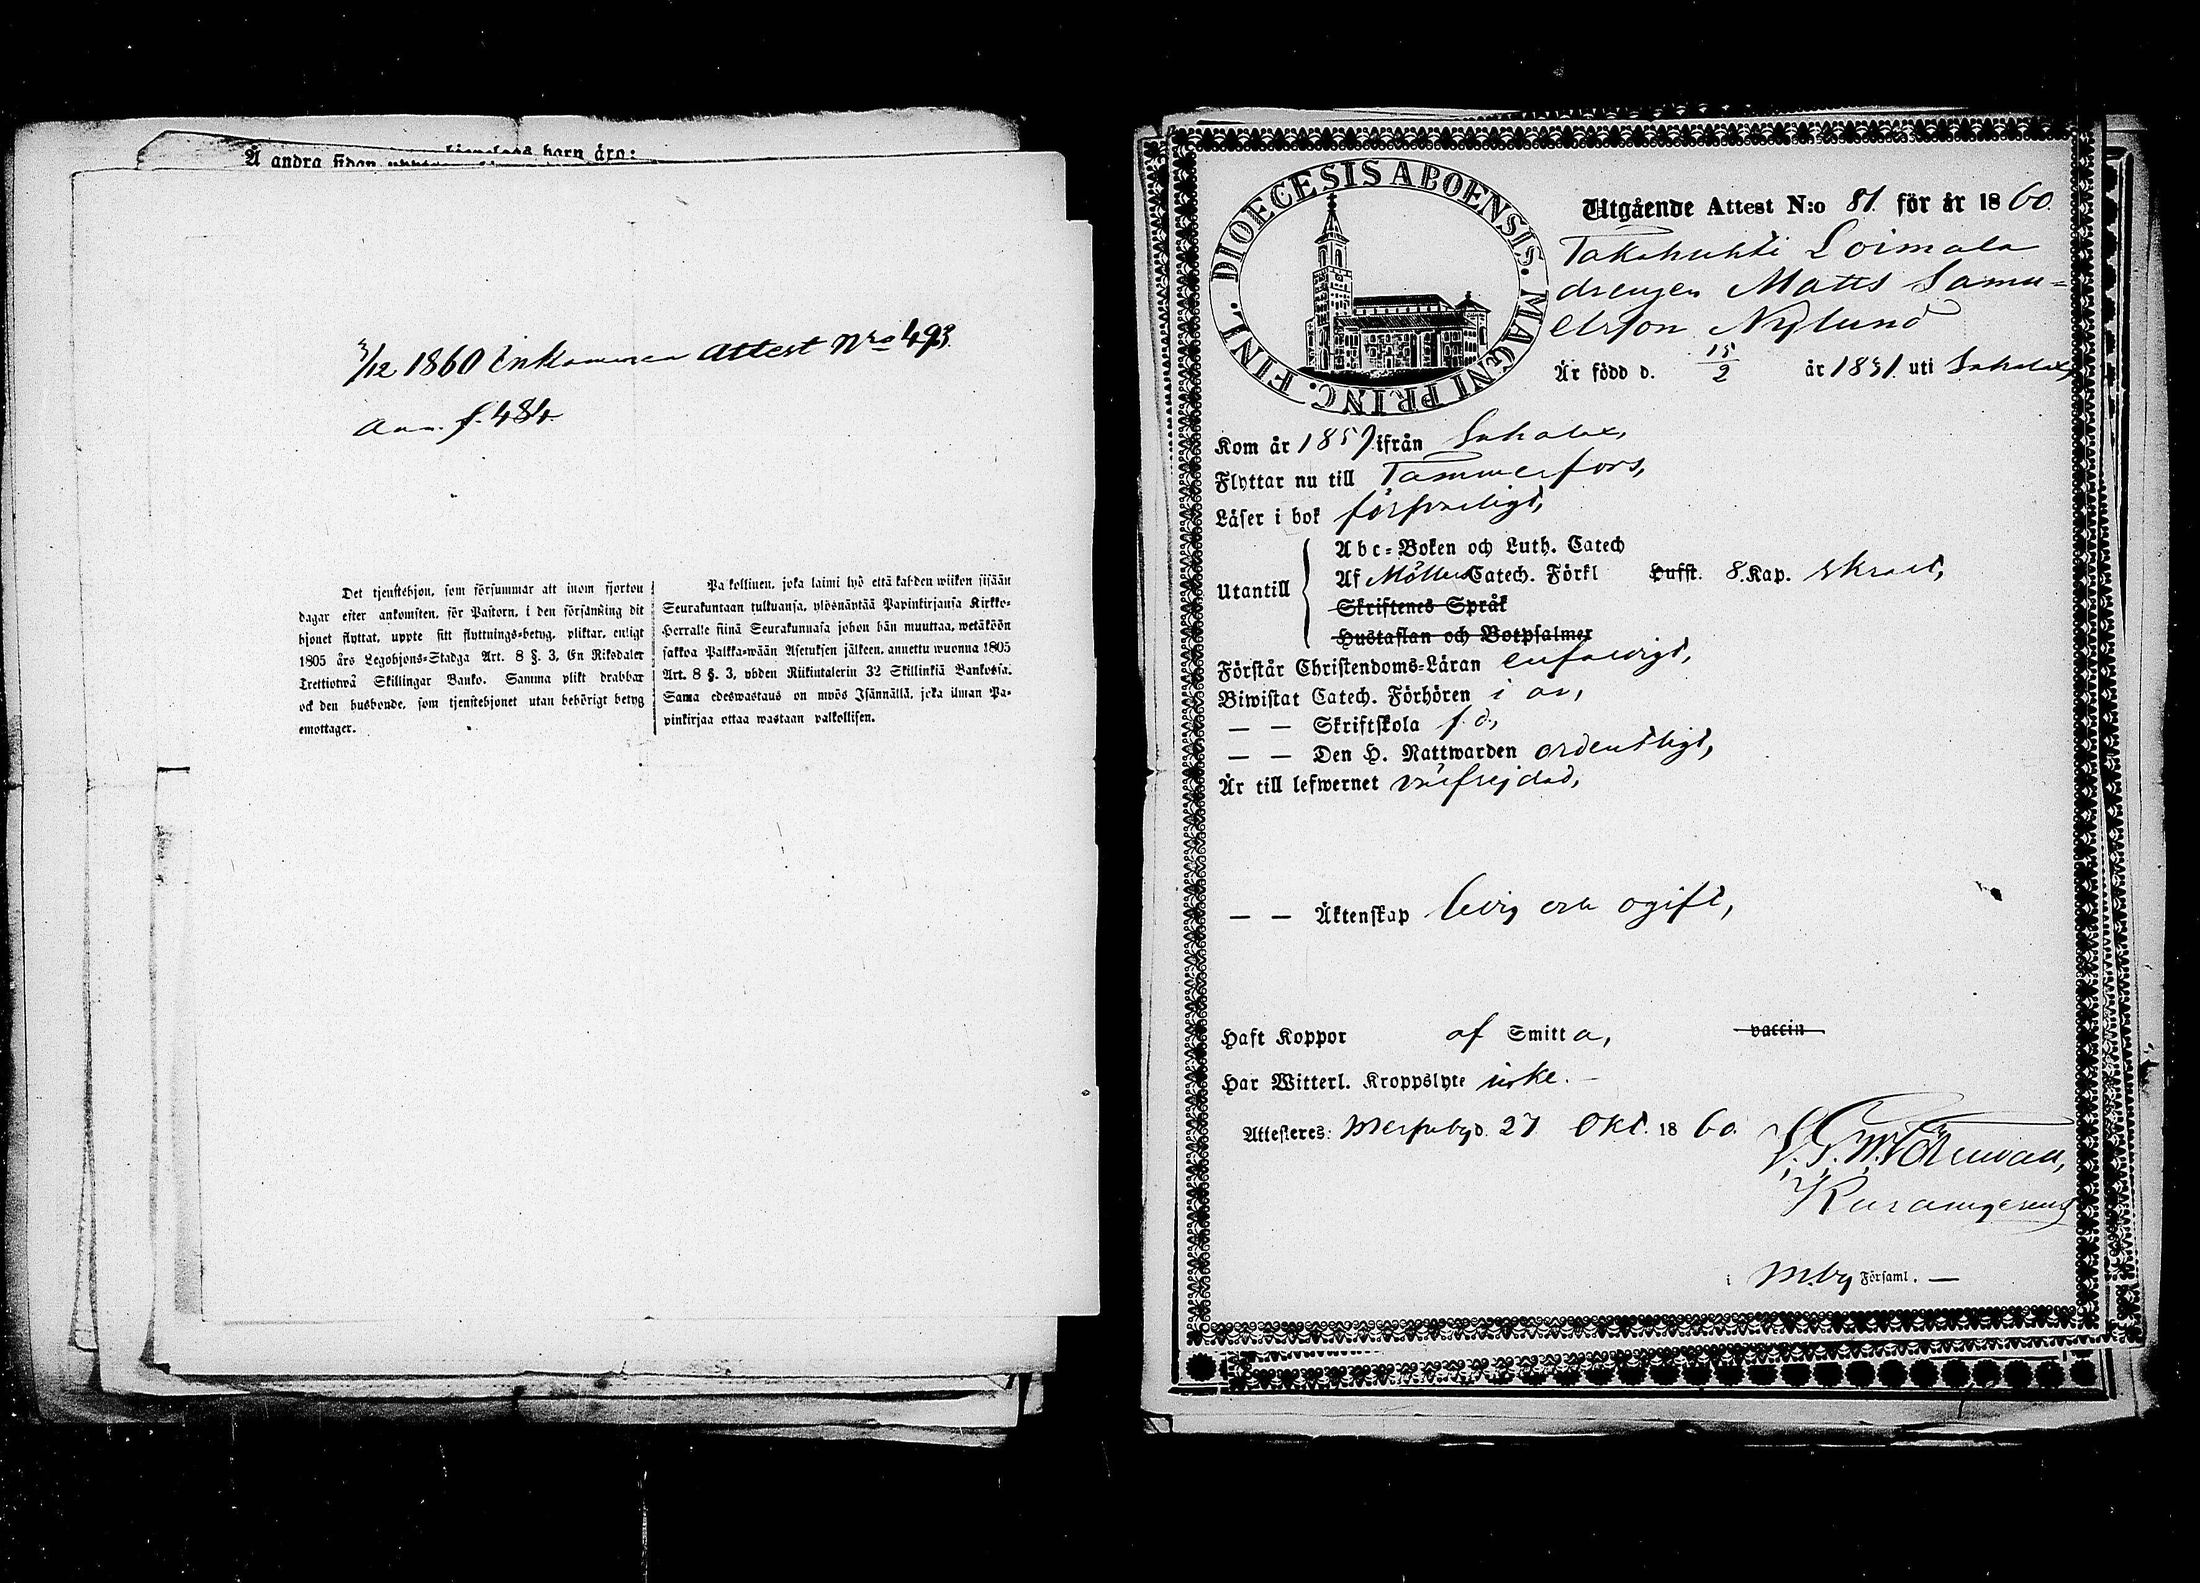 Å andra sidan
barn äro:
5/12 1860 Inkommen Attest Nro 493.
Ann. f. 484.
Det tjenstehjon, som försummar att inom fjorton
dagar efter ankomsten, för Pastorn, i den församling dit
hjonet flyttat, uppte sitt flyttnings=betyg, pliktar, enligt
1805 års Legohjons=Stadga Art. 8 §. 3, En Riksdaler
Trettiotwå Skillingar Banko. Samma plikt drabbar
ock den husbonde, som tjenstehjonet utan behörigt betyg
emottager.
Palkollinen, joka laimi lyö että kahden wiikon sisään
Seurakuntaan tultuansa, ylösnäyttää Papinkirjansa Kirkko=
Herralle siinä Seurakunnasa johon hän muuttaa, wetäköön
sakkoa Palkka=wään Asetuksen jälkeen, annettu wuonna 1805
Art. 8 §. 3, yhden Riikintalerin 32 Skillinkiä Bankossa.
Sama edeswastaus on myös Isännällä, joka ilman Pa=
pinkirjaa ottaa wastaan palkollisen.
DIOECESIS ABOENSIS. MAGNI PRINC. FINL.
Utgående Attest N:o 81. för år 1860.
Takahuhti Loimala
drengen Matts Samu=
elsson Nylund
Är född d. 15/2 år 1831. uti Sahalax,
Kom år 1857 ifrån Sahalax,
Flyttar nu till Tammerfors,
Läser i bok försvarligt,
Utantill
Abc=Boken och Luth. Catech
Af Möllers Catech. Förkl Hufst. 8. Kap. skralt,
Skriftenes Språk
Hustaflan och Botpsalmer
Förstår Christendoms=Läran enfaldigt,
Biwistat Catech. Förhören i år,
— — Skriftskola f. d.,
— — Den H. Nattwarden ordentligt,
Är till lefwernet välfrejdad,
— — Äktenskap ledig och ogift,
Haft Koppor af Smitta, vaccin
Har Witterl. Kroppslyte icke. —
Attesteras: Messuby d. 27 Okt. 1860.
i M.by Församl. —